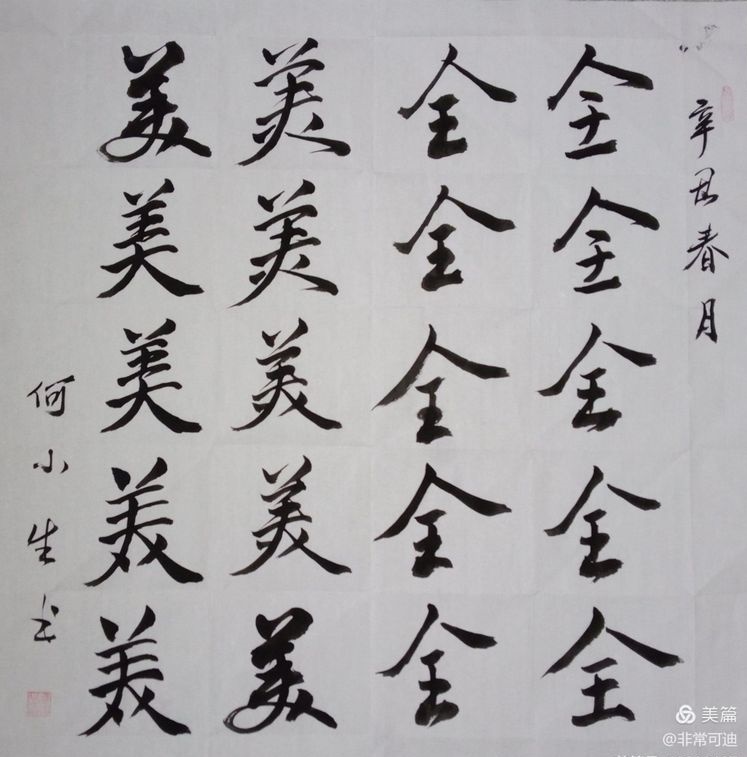 辛丑春月
全全全全全
全全全全全
美美美美美
美美美美美
何小生书
美篇
@非常可迪